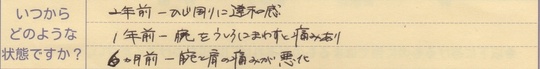 いつから
どのような
状態ですか?
2年前ーひじ周りに違和感
1年前ー腕をうしろにまわすと痛みあり
6ヵ月前ー腕と肩の痛みが悪化